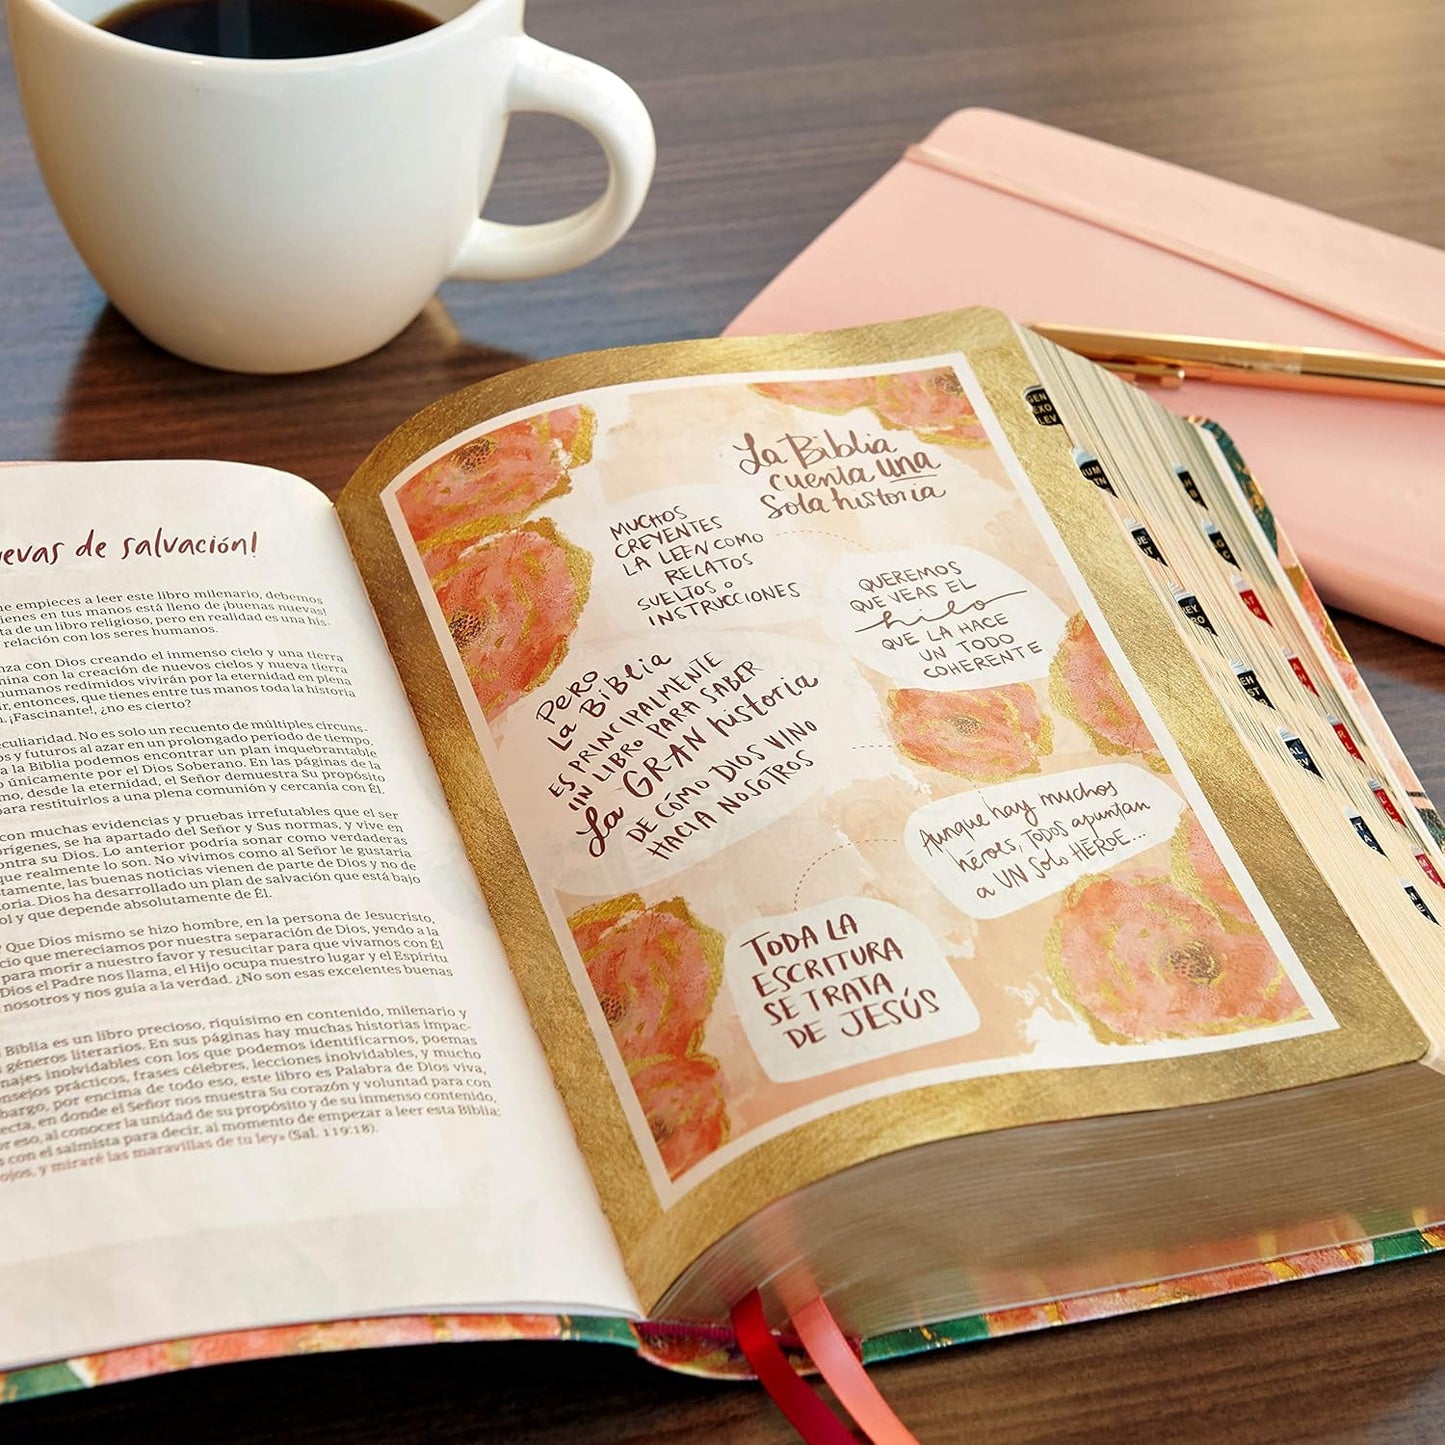 evas de salvación!
empieces a leer este libro milenario, debemos
ienes en tus manos está lleno de ¡buenas nuevas!
ta de un libro religioso, pero en realidad es una his-
relación con los seres humanos.
nza con Dios creando el inmenso cielo y una tierra
mina con la creación de nuevos cielos y nueva tierra
humanos redimidos vivirán por la eternidad en plena
ir, entonces, que tienes entre tus manos toda la historia
¡Fascinante!, ¿no es cierto?
eculiaridad. No es solo un recuento de múltiples circuns-
os y futuros al azar en un prolongado período de tiempo.
a la Biblia podemos encontrar un plan inquebrantable
o únicamente por el Dios Soberano. En las páginas de la
mo, desde la eternidad, el Señor demuestra Su propósito
para restituirlos a una plena comunión y cercanía con Él.
con muchas evidencias y pruebas irrefutables que el ser
orígenes, se ha apartado del Señor y Sus normas, y vive en
ontra su Dios. Lo anterior podría sonar como verdaderas
que realmente lo son. No vivimos como al Señor le gustaría
stamente, las buenas noticias vienen de parte de Dios y no de
toria. Dios ha desarrollado un plan de salvación que está bajo
ol y que depende absolutamente de Él.
Y Que Dios mismo se hizo hombre, en la persona de Jesucristo,
cio que merecíamos por nuestra separación de Dios, yendo a la
para morir a nuestro favor y resucitar para que vivamos con Él
Dios el Padre nos llama, el Hijo ocupa nuestro lugar y el Espíritu
nosotros y nos guía a la verdad. ¿No son esas excelentes buenas
Biblia es un libro precioso, riquísimo en contenido, milenario y
géneros literarios. En sus páginas hay muchas historias impac-
najes inolvidables con los que podemos identificarnos, poemas
onsejos prácticos, frases célebres, lecciones inolvidables, y mucho
bargo, por encima de todo eso, este libro es Palabra de Dios viva,
ecta, en donde el Señor nos muestra Su corazón y voluntad para con
or eso, al conocer la unidad de su propósito y de su inmenso contenido,
s con el salmista para decir, al momento de empezar a leer esta Biblia:
ojos, y miraré las maravillas de tu ley» (Sal. 119:18).
La Biblia
cuenta una
sola historia
MUCHOS
CREYENTES
LA LEEN COMO
RELATOS
SUELTOS o
INSTRUCCIONES
QUEREMOS
QUE VEAS EL
hilo
QUE LA HACE
UN TODO
COHERENTE
PERO
LA BIBLIA
ES PRINCIPALMENTE
UN LIBRO PARA SABER
La GRAN historia
DE CÓMO DIOS VINO
HACIA NOSOTROS
Aunque hay muchos
héroes, TODOS apuntan
a UN Solo HÉROE...
TODA LA
ESCRITURA
SE TRATA
DE JESÚS
GEN
EXO
LEV